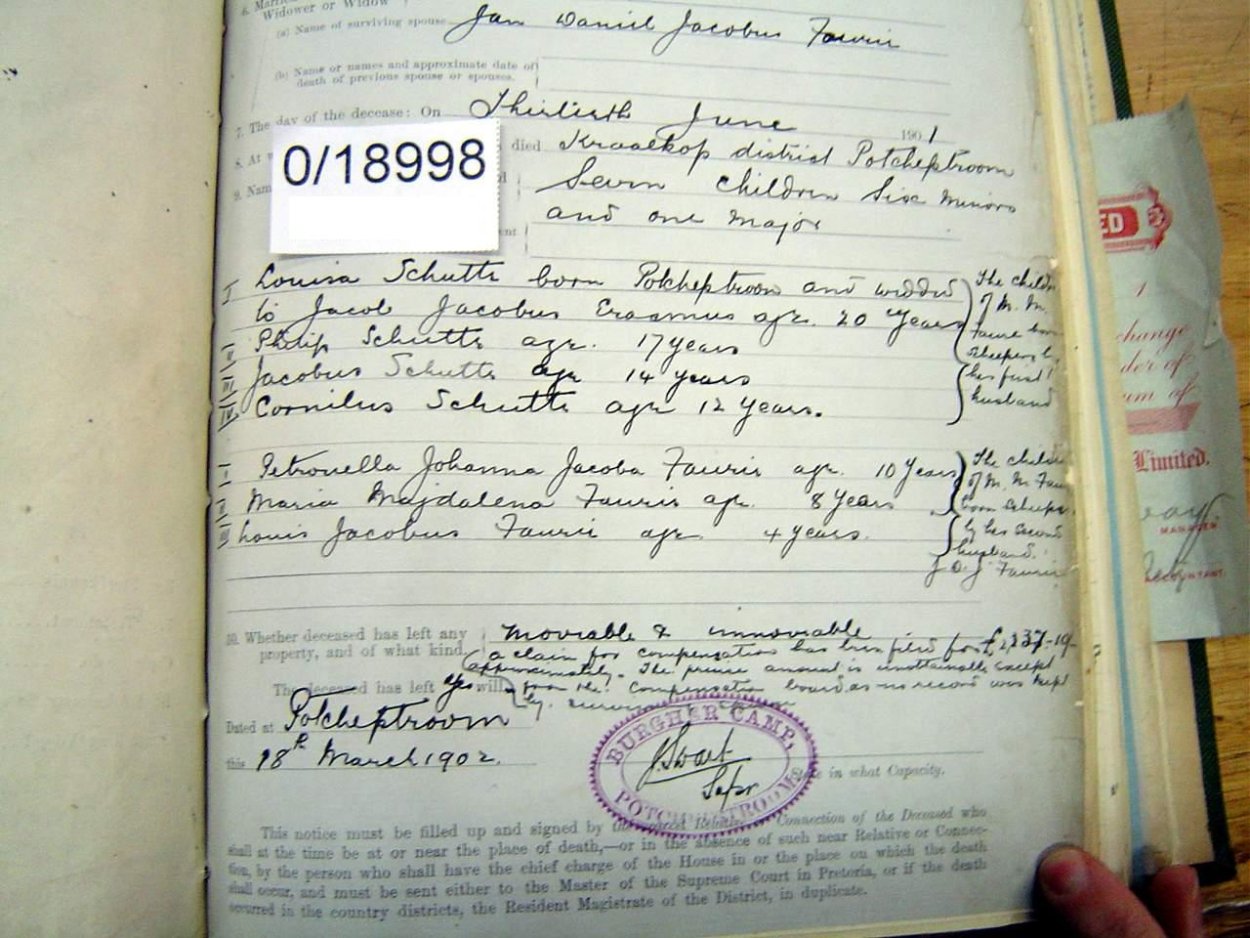 6. Marri
Widower or Widow
(a) Name of surviving spouse Jan Daniel Jacobus Fourie
(b) Name or names and approximate date of
death of previous spouse or spouses.
7. The day of the decease: On Thirtieth June 1901
8. At w died Kraalkop district Potcheptroom
0/18998
9. Nam Seven children Six Minors
and one Major
I Louisa Schutte born Potcheptroom and wedded
to Jacob Jacobus Erasmus age. 20 Years
II Philip Schutte age. 17 years
III Jacobus Schutte age 14 years
IV Cornilus Schutte age 12 Years.
The childr
of M. M.
first
husband
I Petronella Johanna Jacoba Fourie age. 10 Years
II Maria Majdalena Fourie age. 8 Years
III Louis Jacobus Fourie age 4 years.
The child
of M. M. Fou
born
by her second
husband.
J. D. J. Fourie
10. Whether deceased has left any
property, and of what kind.
Moviable & immoviable
a claim for compensation has been filed for £2,237-19-
approximately. The precise amount is unattainable except
from the compensation board as no record was kept
by
The deceased has left yes will
Dated at Potcheptroom
this 18th March 1902.
BURGHER CAMP,
POTCHEFSTROOM
J Swart
Supr
State in what Capacity.
This notice must be filled up and signed by the nearest Relative or Connection of the Deceased who
shall at the time be at or near the place of death,—or in the absence of such near Relative or Connec-
tion, by the person who shall have the chief charge of the House in or the place on which the death
shall occur, and must be sent either to the Master of the Supreme Court in Pretoria, or if the death
occurred in the country districts, the Resident Magistrate of the District, in duplicate.
ED
1
change
der of
um of
Limited.
MANAGER
ACCOUNTANT